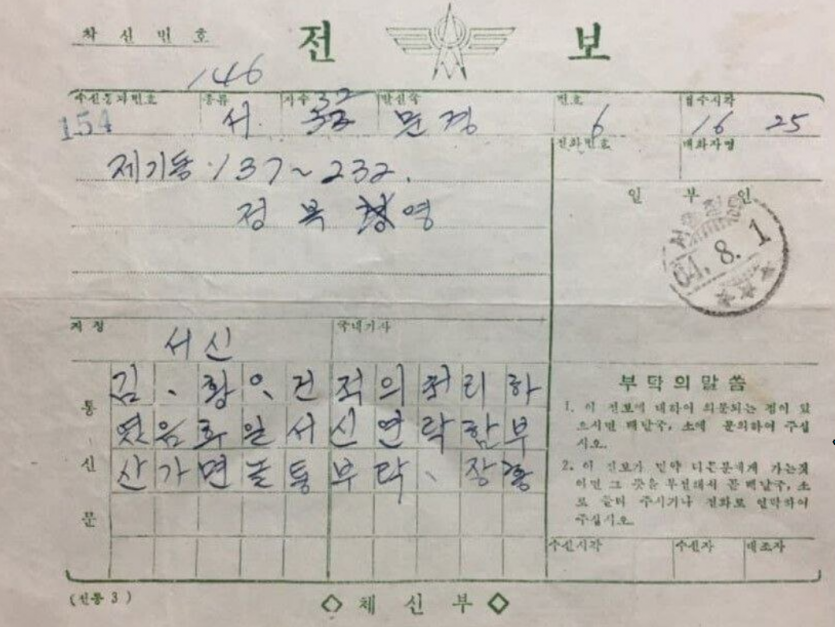 착신번호
전 보
146
수신통과번호 종류 자수 발신국 번호 접수시각
154 서 32 문경 6 16 25
전화번호 배화자명
제기동 137~232.
정 복 영
일 부 인
81. 8. 1
지정 국내기사
서신
통신문
김、황 이、건 적의 처리하
였음 화일 서신연락함 부
산가면 통부락、장
부탁의말씀
1. 이 전보에 대하여 의문되는 점이 있
으시면 배달국, 소에 문의하여 주십
시오.
2. 이 전보가 만약 다른분에게 가는것
이면 그 뜻을 부전해서 곧 배달국, 소
로 돌려 주시거나 전화로 연락하여
주십시오.
수신시각 수신자 대조자
(전통 3)
체 신 부